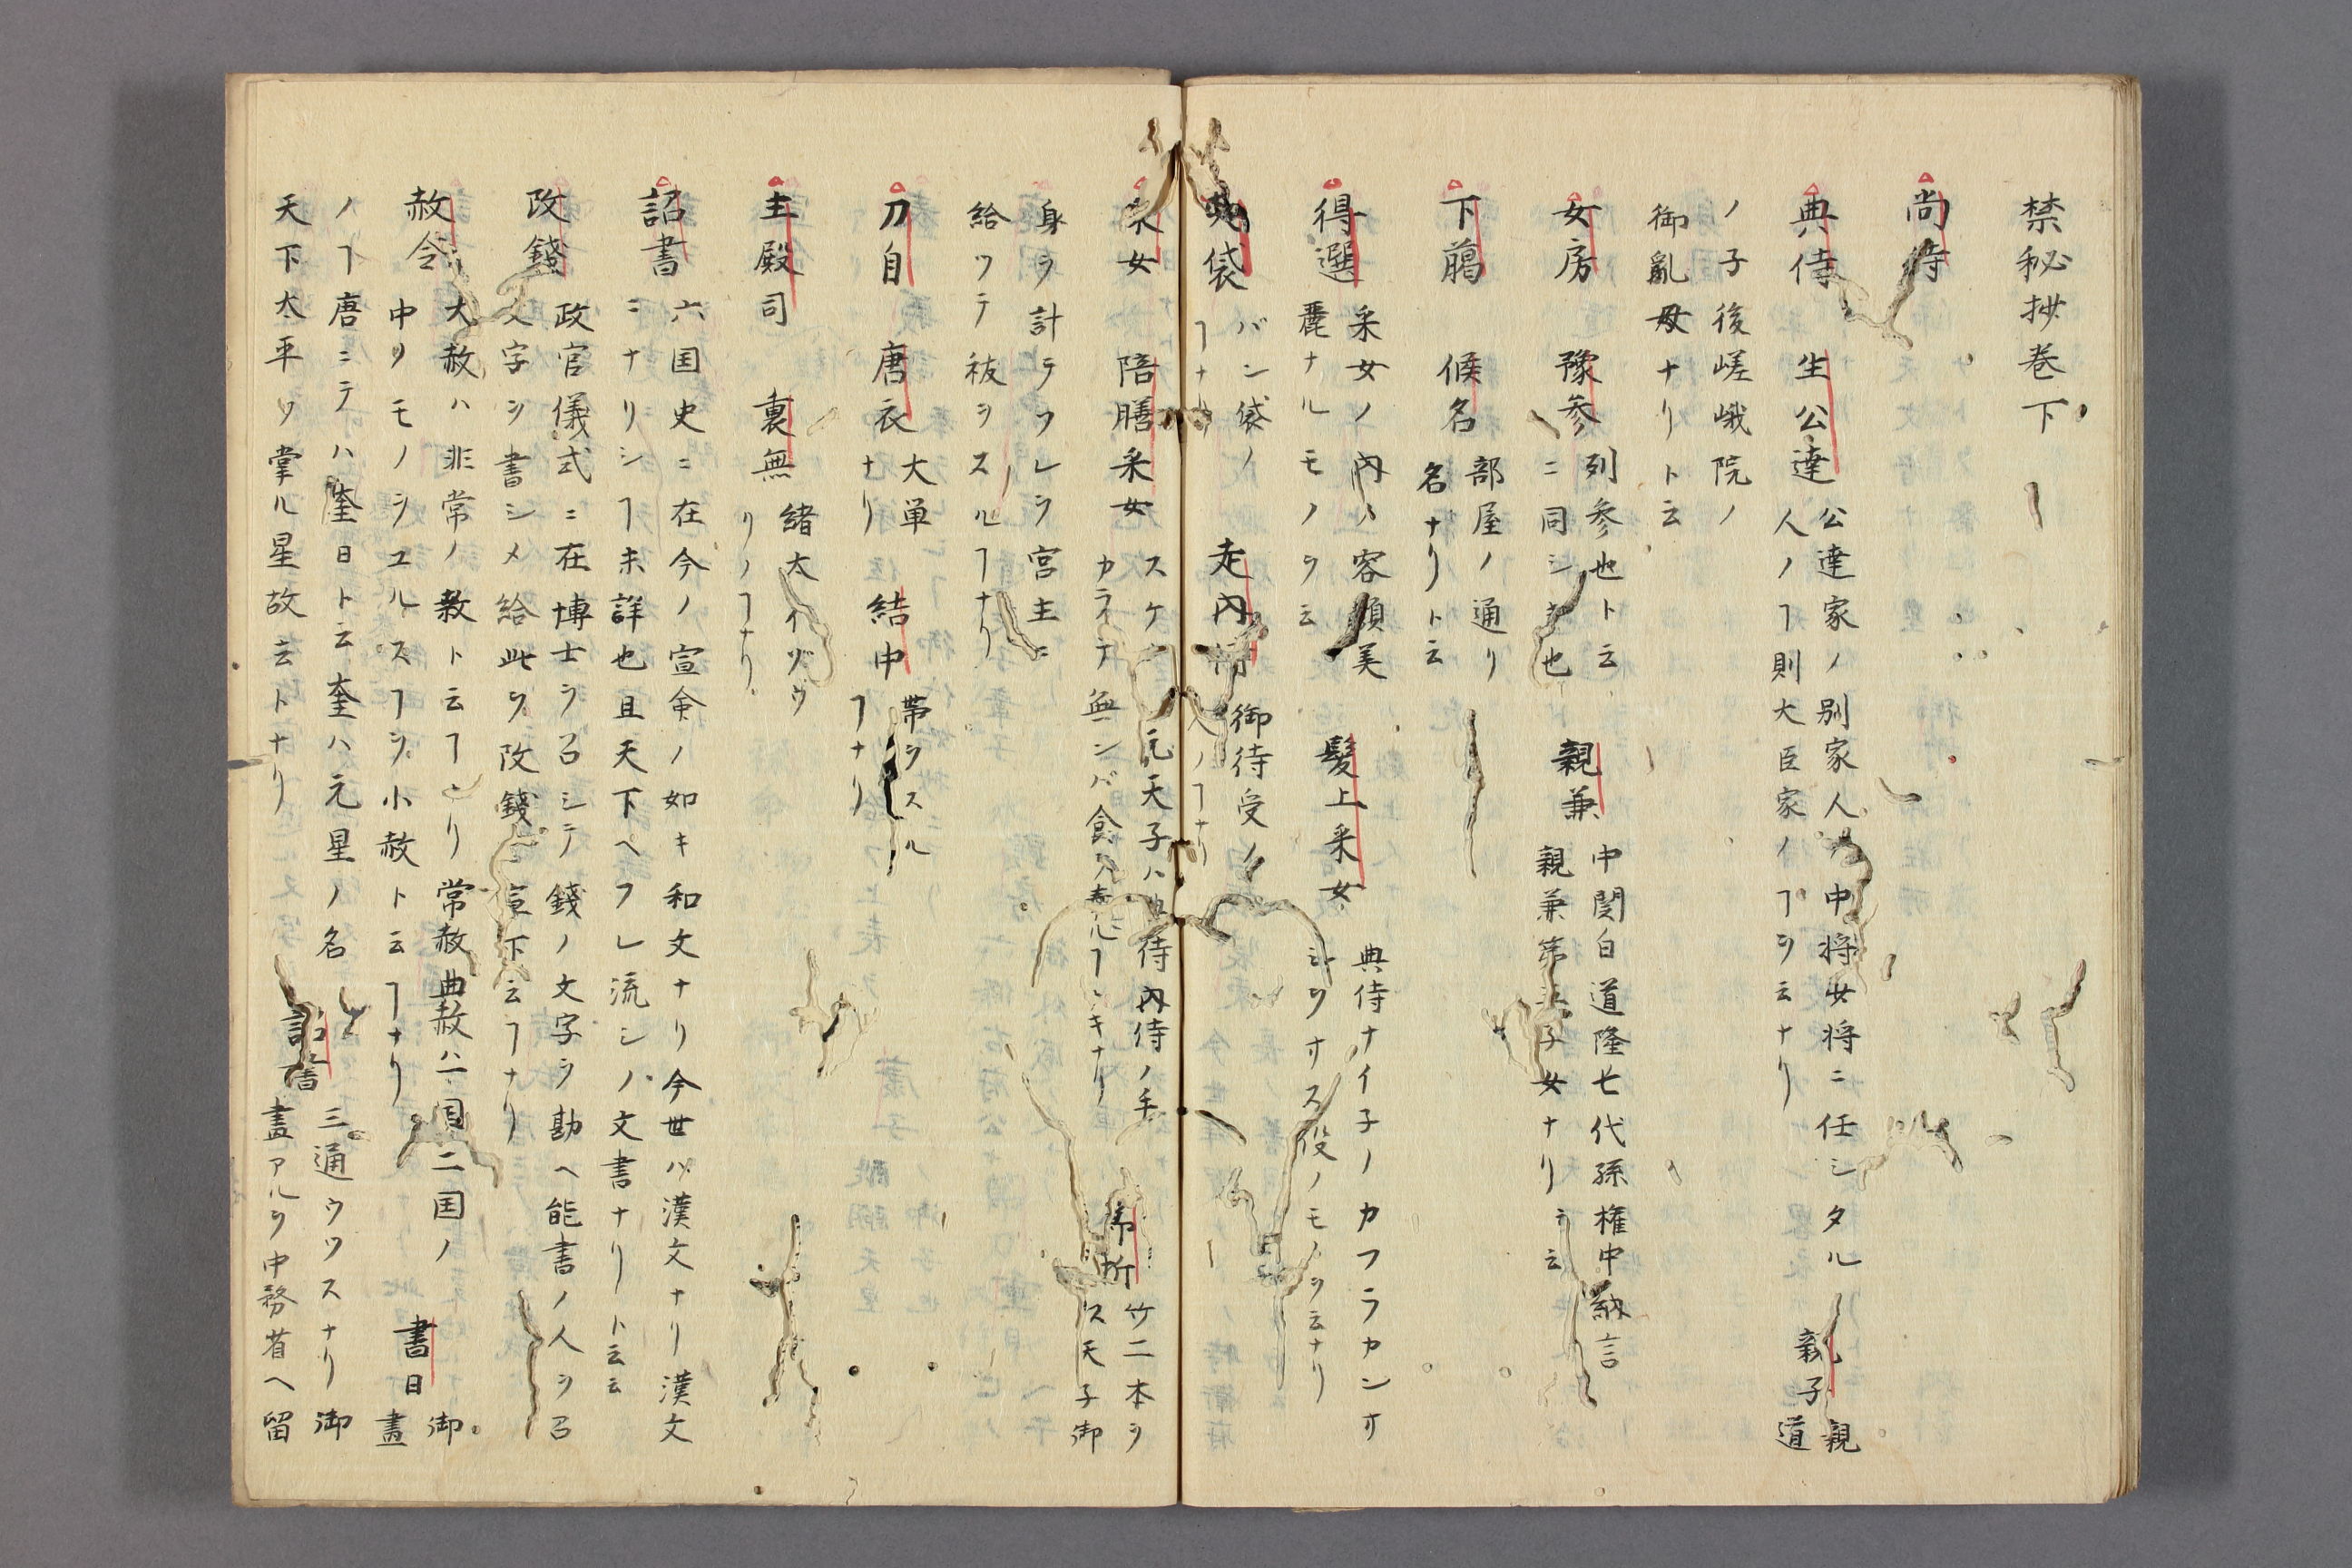 禁秘抄巻下
尚侍
典侍 生公達 公達家ノ別家人 中将少将ニ任シタル
人ノヿ則大臣家ノヿヲ云ナリ 親子 親
道
ノ子後嵯峨院ノ
御亂母ナリト云
女房 豫参 列参也ト云
ニ同シキ也 親兼 中関白道隆七代孫権中納言
親兼 子女ナリト云
下﨟 候名 部屋ノ通リ
名ナリト云
得選 采女ノ内ハ容顔美
麗ナルモノヲ云 髪上采女 典侍ナイ子ノカフラカンオ
ヲオス役ノモノヲ云ナリ
袋 バン袋ノ
ヿナリ 走内侍 御待受ノ
人ノヿナリ
采女 陪膳采女 スケ 元天子ハ 侍内侍ノ手
カライテ無ンバ食 ヿ キナリ
竹二本ヲ
ス天子御
身ヲ計テワレヲ宮主ニ
給ワテ祓ヲスルヿナリ
刀自 唐衣 大単
ナリ 結申 帯ヲスル
ヿナリ
主殿司 裏無 緒太 イヅヴ
リノヿナリ
詔書 六国史ニ在今ノ宣命ノ如キ和文ナリ今世ハ漢文ナリ漢文
ニナリシヿ未詳也且天下ヘフレ流シノ文書ナリト云云
改錢 政官儀式ニ在博士ヲ召シテ錢ノ文字ヲ勘ヘ能書ノ人ヲ召
文字ヲ書シメ給此ヲ改錢 宣下云ヿナリ
赦令 大赦ハ非常ノ赦ト云ヿナリ常赦曲赦ハ一国二国ノ
中ノモノヲユルスヿヲ小赦ト云ヿナリ 書日 御
畫
ノヿ唐ニテハ奎日ト云奎ハ元星ノ名
天下太平ヲ掌ル星故云トナリ 詔書 三通ウツスナリ御
畫アルヲ中務省ヘ留